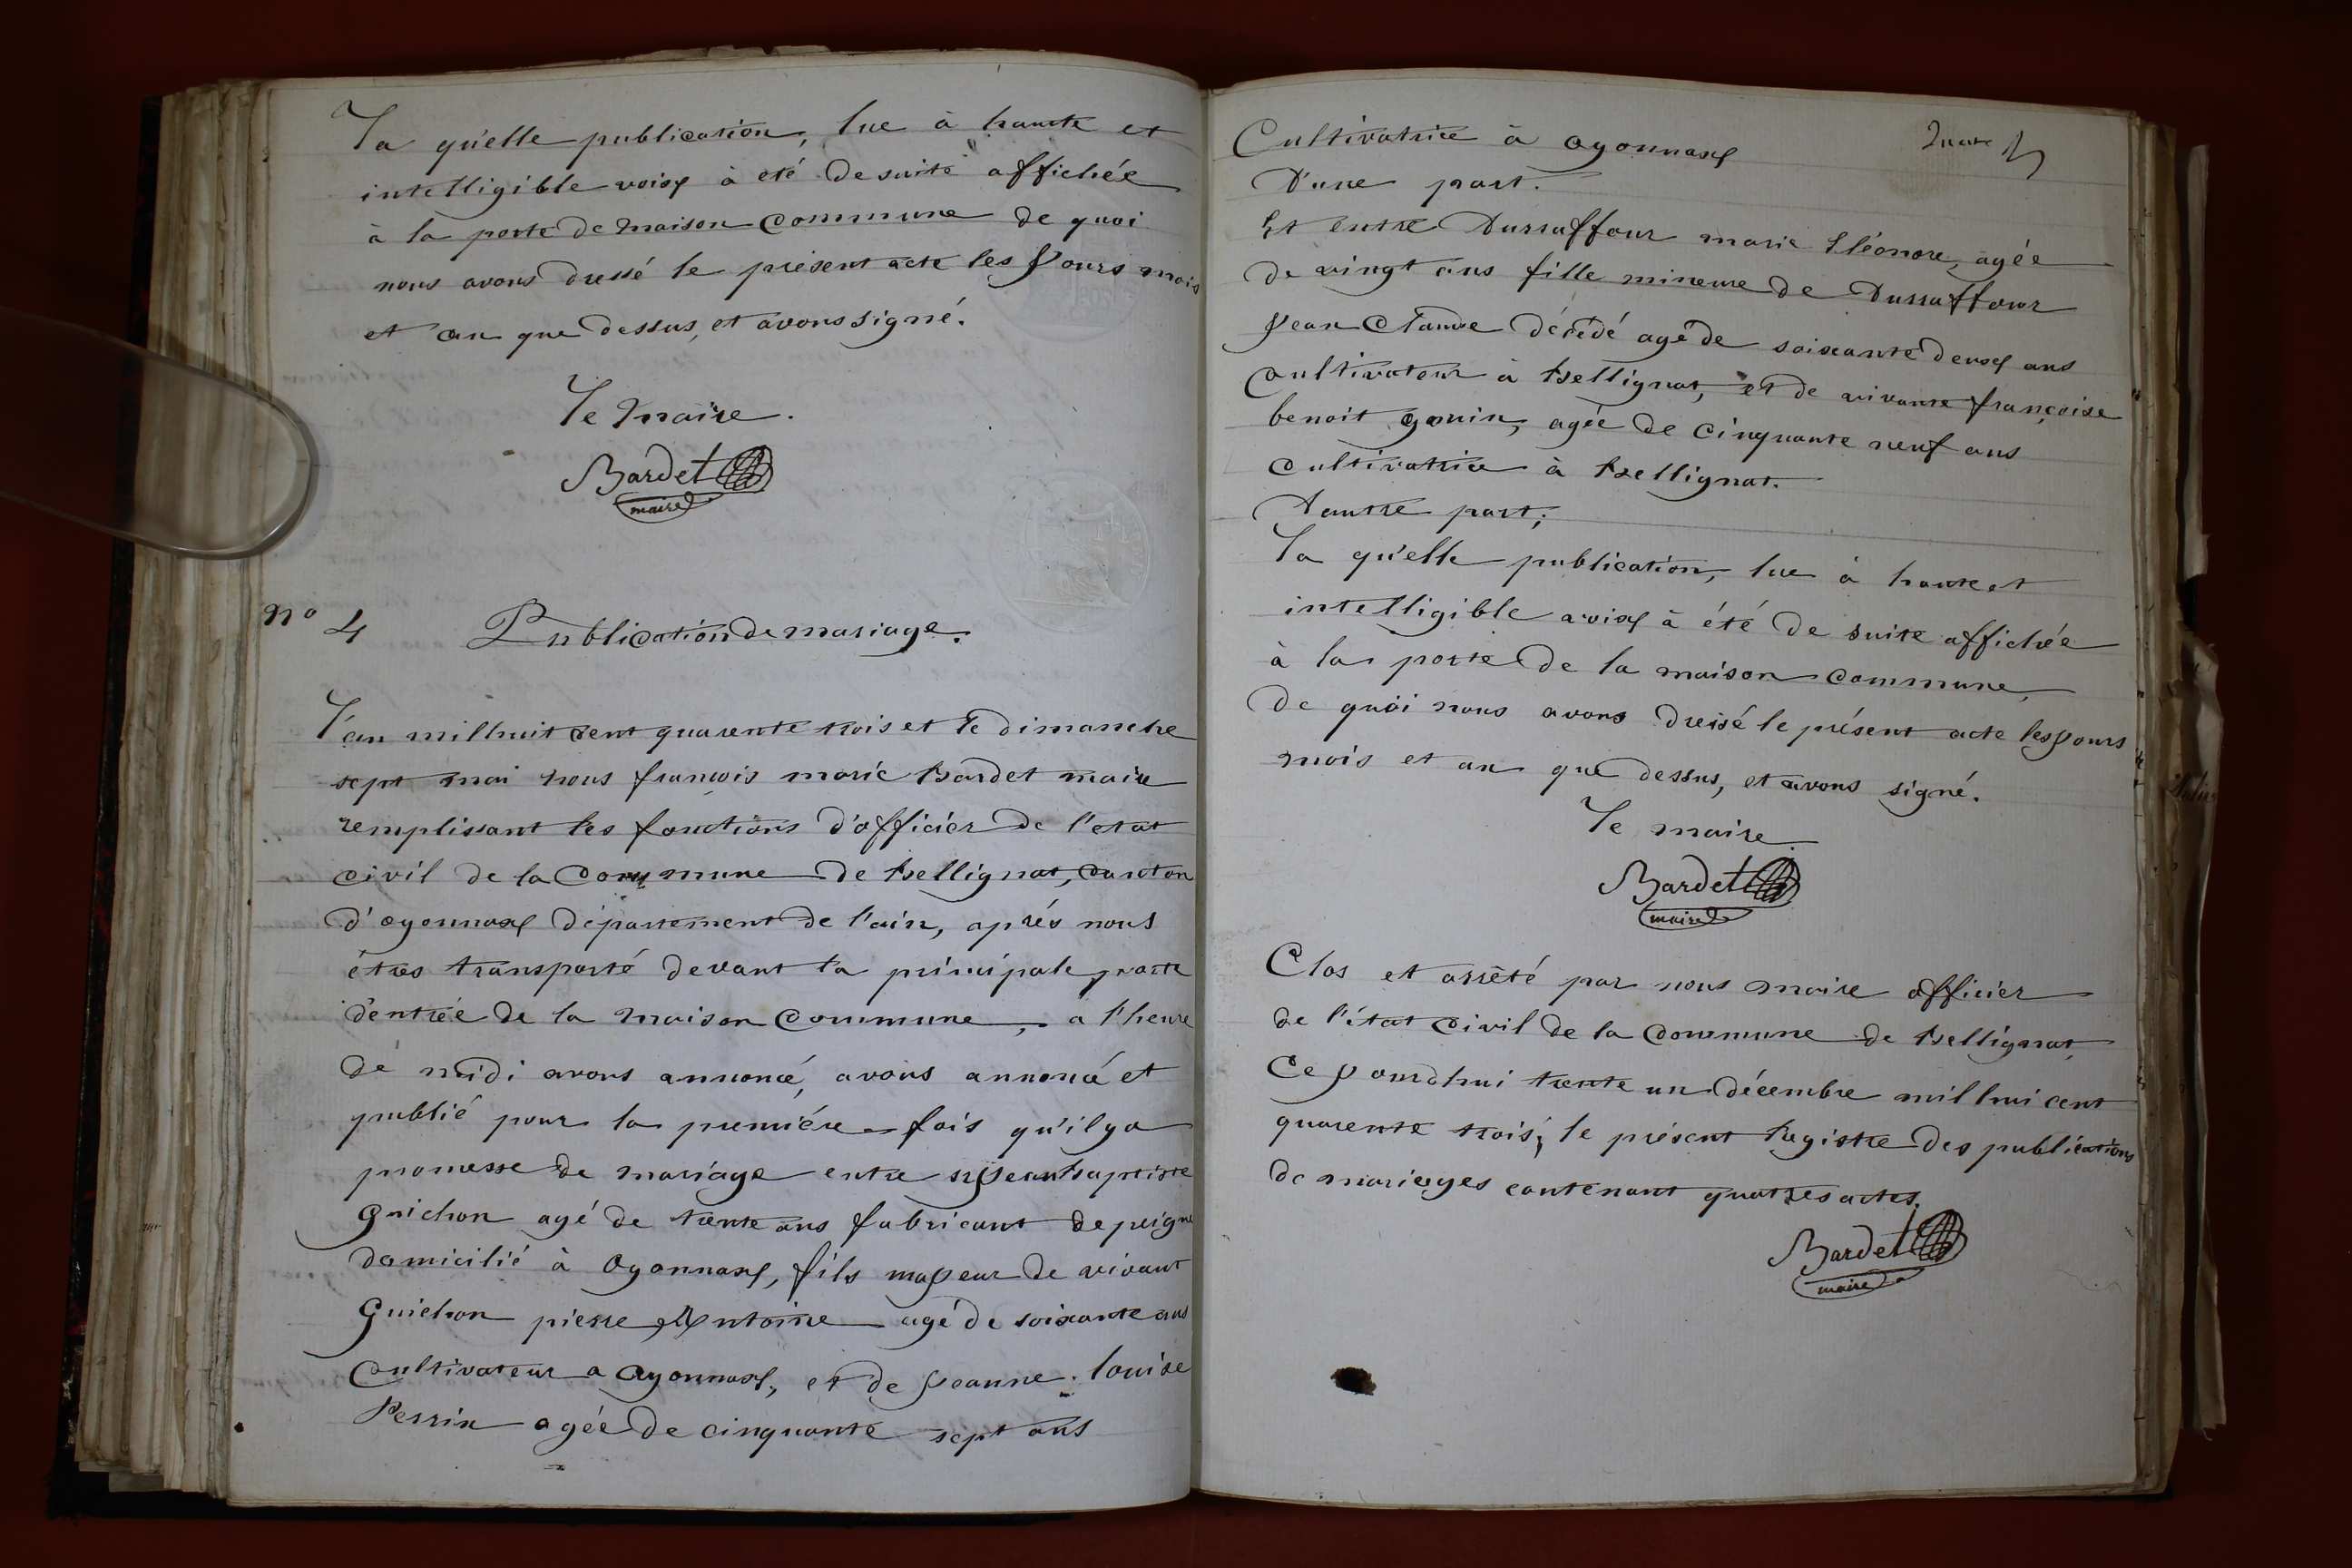 La qu'elle publication, lue à haute et
intelligible voix à eté de suite affichée
à la porte de maison commune de quoi
nous avons dressé le présent acte les Jours mois
et an que dessus, et avons signé.
Le Maire.
Bardet
maire
No 4 Publication de mariage.
L'an mil huit cent quarente trois et le dimanche
sept mai nous francois marie Bardet maire
remplissant les fonctions d'officier de l'etat
civil de la commune de Bellignat, canton
d'oyonnax département de l'ain, aprés nous
étres transporté devant la principale porte
d'entrée de la maison commune, a l'heure
de midi avons annoncé, avons annoncé et
publié pour la premiére fois qu'il y a
promesse de mariage entre sr Jean Baptiste
Guichon agé de trente ans fabricant de peigne
domicilié à Oyonnax, fils majeur de vivant
Guichon pierre Antoine agé de soixante ans
Cultivateur a Oyonnax, et de Jeanne louise
Perrin agée de cinquante sept ans
Cultivatrice à Oyonnax
D'une part.
Et entre Dussuffour marie Eléonore, agée
de vingt ans fille mineure de Dussuffour
Jean Claude décédé agé de soixante deux ans
Cultivateur à Bellignat, et de vivante françoise
benoit gonin, agée de cinquante neuf ans
Cultivatrice à Bellignat.
Dautre part;
La qu'elle publication, lue à haute et
intelligible voix à été de suite affichée
à la porte de la maison commune,
de quoi nous avons dressé le présent acte les Jours
mois et an que dessus, et avons signé.
Le maire.
Bardet
maire
Clos et arrêté par nous maire officier
de l'état civil de la commune de Bellignat,
Ce Jourdhui trente un décembre mil hui cent
quarente trois, le présent Registre des publications
de marieges contenant quatres actes.
Bardet
maire